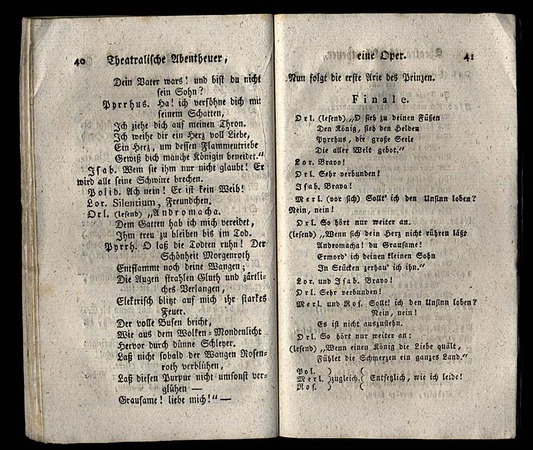 40 Theatralische Abentheuer,
Dein Vater wars! und bist du nicht
sein Sohn?
Pyrrhus. Ha! ich versöhne dich mit
seinem Schatten,
Ich ziehe dich auf meinen Thron.
Ich weihe dir ein Herz voll Liebe,
Ein Herz, um dessen Flammentriebe
Gewiß dich manche Königin beneidet.“
Isab. Wenn sie ihm nur nicht glaubt! Er
wird alle seine Schwüre brechen.
Polid. Ach nein! Er ist kein Weib!
Lor. Silentium, Freundchen.
Orl. (lesend) „Andromacha.
Dem Gatten hab ich mich vereidet,
Ihm treu zu bleiben bis im Tod.
Pyrrh. O laß die Todten ruhn! Der
Schönheit Morgenroth
Entflamme noch deine Wangen;
Die Augen strahlen Gluth und zärtli-
ches Verlangen,
Elektrisch blitzt auf mich ihr starkes
Feuer.
Der volle Busen bricht,
Wie aus dem Wolken-Mondenlicht
Hervor durch dünne Schleyer.
Laß nicht sobald der Wangen Rosen-
roth verblühen,
Laß diesen Purpur nicht umsonst ver-
glühen —
Grausame! liebe mich!“ —
eine Oper. 41
Nun folgt die erste Arie des Prinzen.
Finale.
Orl. (lesend) „O sieh zu deinen Füßen
Den König, sieh den Helden
Pyrrhus, die große Seele
Die aller Welt gebot.“
Lor. Bravo!
Orl. Sehr verbunden!
Isab. Bravo!
Merl. (vor sich) Sollt' ich den Unsinn loben?
Nein, nein!
Orl. So hört nur weiter an.
(lesend) „Wenn sich dein Herz nicht rühren läßt
Andromacha! du Grausame!
Ermord' ich deinen kleinen Sohn
In Stücken zerhau' ich ihn.“
Lor. und Isab. Bravo!
Orl. Sehr verbunden!
Merl. und Ros. Sollt' ich den Unsinn loben?
Nein, nein!
Es ist nicht auszustehn.
Orl. So hört nur weiter an:
(lesend) „Wenn einen König die Liebe quält,
Fühlet die Schmerzen ein ganzes Land.“
Pol.
Merl. zugleich. Entsetzlich, wie ich leide!
Ros.